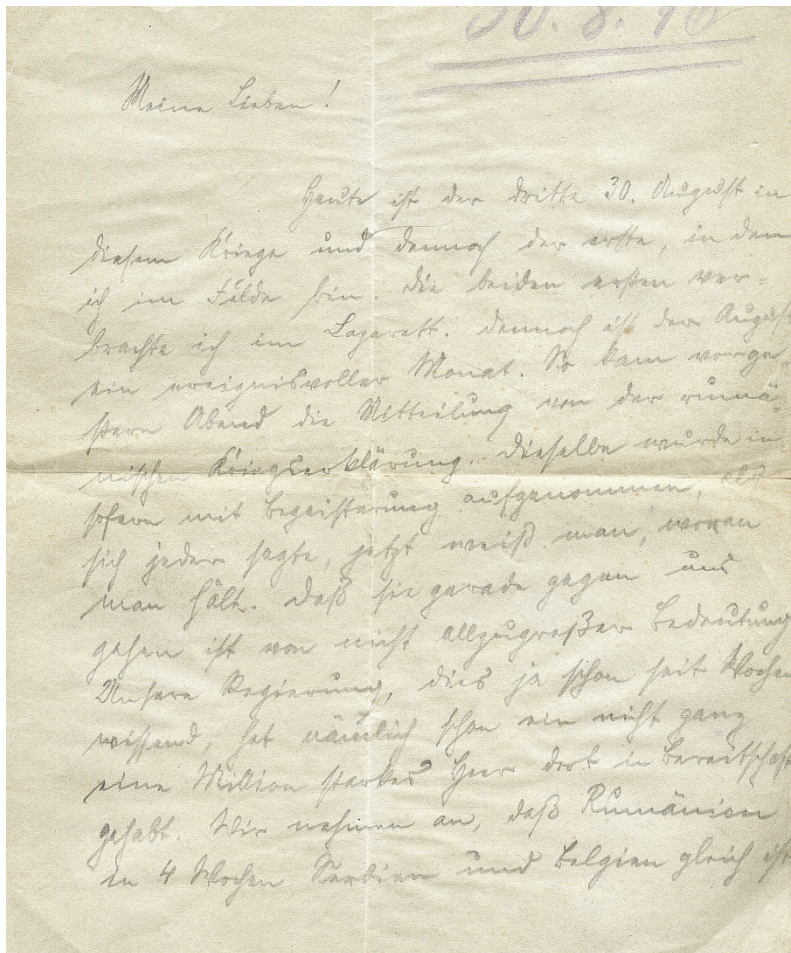 30. 8. 16
Meine Lieben!
Heute ist der dritte 30. August in
diesem Kriege und dennoch der erste, in dem
ich im Felde bin. Die beiden ersten ver-
brachte ich im Lazarett. Dennoch ist der August
ein ereignisvoller Monat. So kam vorge-
stern Abend die Mitteilung von der rumä-
nischen Kriegserklärung. Dieselbe wurde in-
sofern mit Begeisterung aufgenommen, als
sich jeder sagte, jetzt weiß man, woran
man hält. Daß sie gerade gegen uns
gehen ist von nicht allzugroßer Bedeutung
Unsere Regierung, dies ja schon seit Wochen
wissend, hat nämlich schon ein nicht ganz
eine Million starkes Heer dort in Bereitschaft
gehabt. Wir nehmen an, daß Rumänien
in 4 Wochen Serbien und Belgien gleich ist